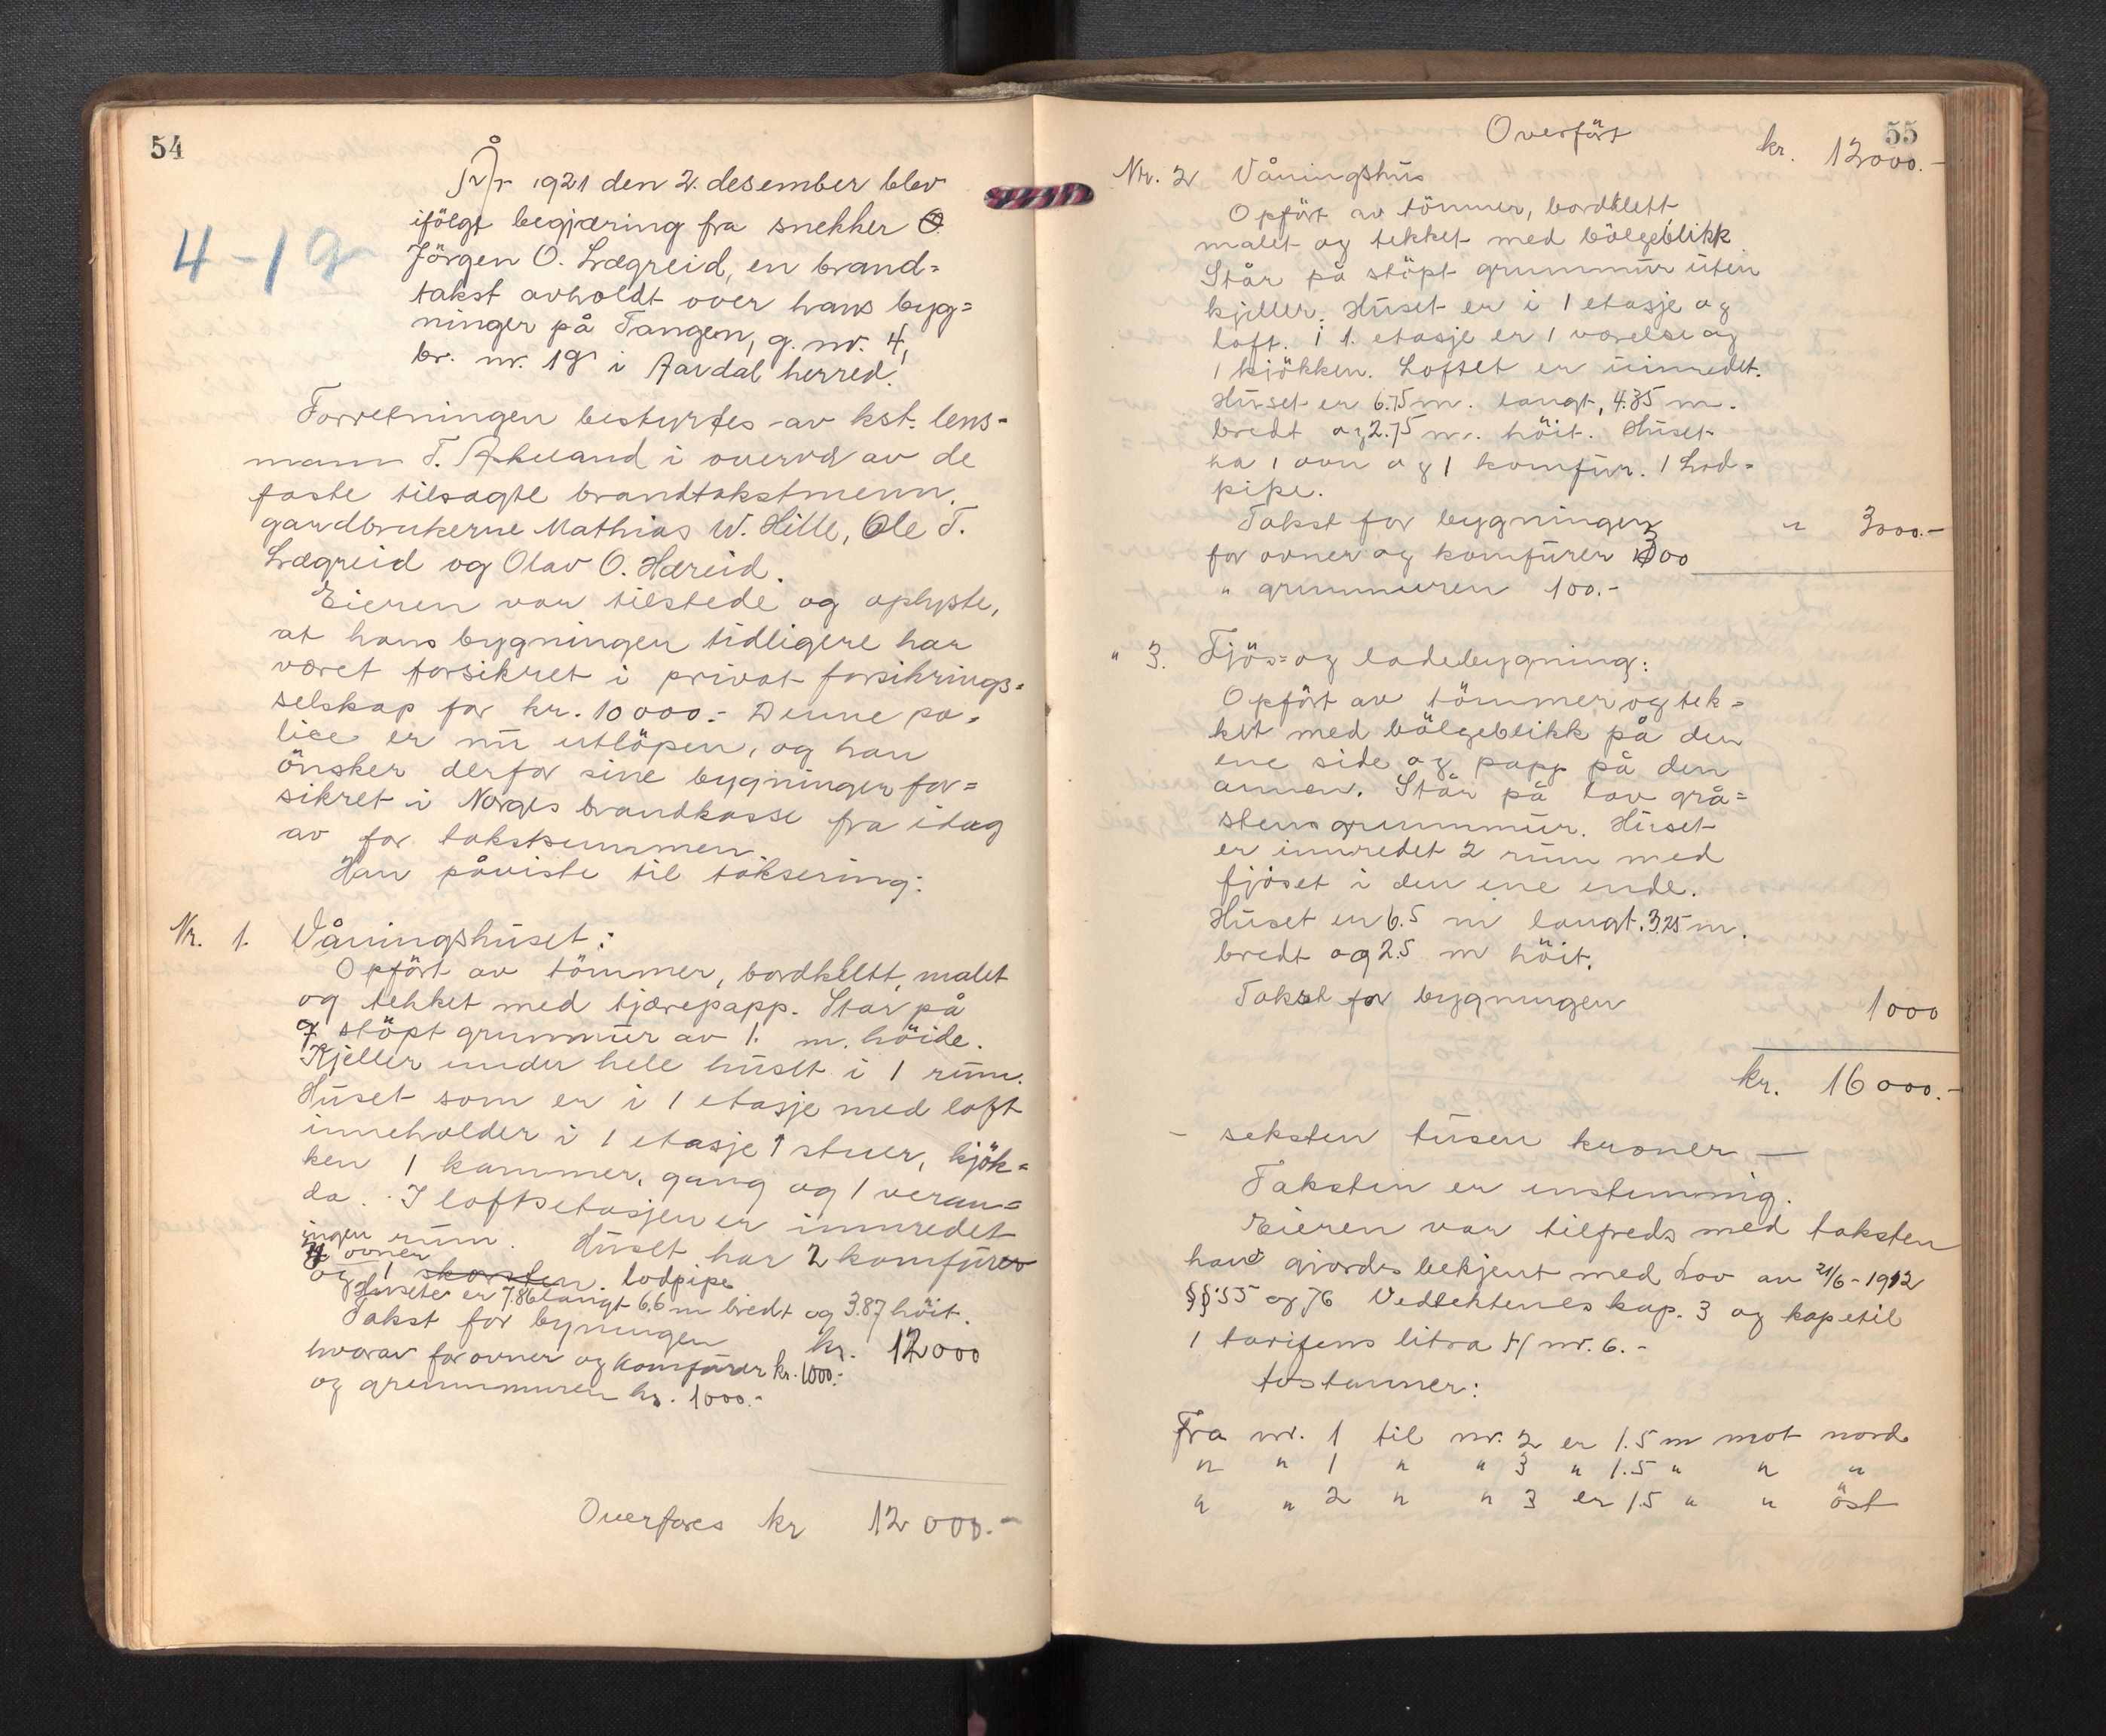 54
År 1921 den 2. desember blev
ifölge begjæring fra snekker O.
Jörgen O. Lægreid, en brand=
takst avholdt over hans byg=
ninger på Tangen, g. nr. 4,
br. nr. 19 i Aardal herred.
4-19
Forretningen bestyrtes av kst. lens-
mann T. Akeland i overvær av de
faste tilsagte brandtakstmenn,
gardbrukerne Mathias W. Hille, Ole T.
Lægreid og Olav O. Hæreid.
Eieren var tilstede og oplyste,
at hans bygningen tidligere har
været forsikret i privat forsikrings=
selskap for kr. 10000.- Denne po=
lice er nu utlöpen, og han
önsker derfor sine bygninger for=
sikret i Norges brandkasse fra idag
av for takstsummen.
Han påviste til taksering:
Nr. 1. Våningshuset:
Opfört av tömmer, bordklett, malet
og tekket med tjærepapp. Star på
stöpt grunmur av 1. m. höide.
Kjeller under hele huset i 1 rum.
Huset som er i 1 etasje med loft
inneholder i 1 etasje 1 stuer, kjök=
ken 1 kammer, gang og 1 veran=
da. I loftsetasjen er innredet
ingen rum. Huset har 2 komfurer
4 ovner
og 1 skorsten. lodpipe
Huset er 7.86 langt 6.6 m bredt og 3.87 höit.
Takst for byningen kr. 12000
hvorav for ovner og komfurer kr. 1000.-
og grunnmuren kr. 1000.-
Overföres kr 12000.-
55
Overfört kr. 12000.-
Nr. 2 Våningshus
Opfört av tömmer, bordklett,
malet og tekket med bölgeblikk.
Står på stöpt grunnmur uten
kjeller. Huset er i 1 etasje og
loft. i 1. etasje er 1 værelse og
1 kjökken. Loftet er uinredet.
Huset er 6.75 m. langt, 4.35 m.
bredt og 2.75 m. höit. Huset
ha 1 ovn og 1 komfur. 1 Lod=
pipe.
Takst for bygningen " 3000.-
for ovner og komfurer 300
" grunnmuren 100.-
" 3. Fjös= og ladebygning:
Opfört av tömmer og tek=
ket med bölgeblikk på den
ene side og papp på den
annen. Står på lav grå=
stens grunnmur. Huset
er innredet 2 rum med
fjöset i den ene ende.
Huset er 6.5 m langt. 3.25 m.
bredt og 2.5 m höit.
Takst for bygningen 1000
kr. 16000.-
- seksten tusen kroner -
Taksten er enstemmig.
Eieren var tilfreds med taksten
han gjordes bekjent med Lov av 21/6-1912
§§ 55 og 76 Vedtektenes kap. 3 og kapetil
1 tarifens litra H nr. 6.-
Avstanner:
Fra nr. 1 til nr. 2 er 1.5 m mot nord
" " 1 " " 3 " 1.5 " " "
" " 2 " " 3 er 1.5 " " öst